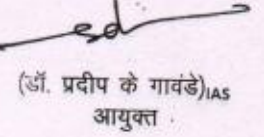 (डॉ. प्रदीप के गावंडे)IAS
आयुक्त